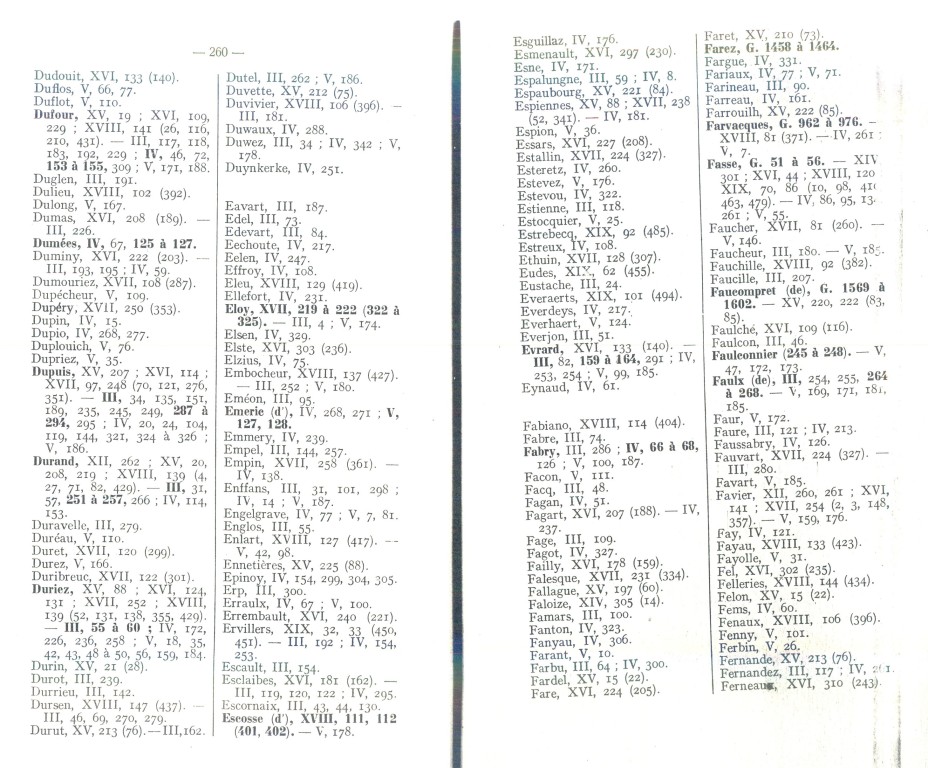 — 260 —
Dudouit, XVI, 133 (140).
Duflos, V, 66, 77.
Duflot, V, 110.
Dufour, XV, 19 ; XVI, 109,
229 ; XVIII, 141 (26, 116,
210, 431). — III, 117, 118,
183, 192, 229 ; IV, 46, 72,
153 à 155, 309 ; V, 171, 188.
Duglen, III, 191.
Dulieu, XVIII, 102 (392).
Dulong, V, 167.
Dumas, XVI, 208 (189). —
III, 226.
Dumées, IV, 67, 125 à 127.
Duminy, XVI, 222 (203). —
III, 193, 195 ; IV, 59.
Dumouriez, XVII, 108 (287).
Dupécheur, V, 109.
Dupéry, XVII, 250 (353).
Dupin, IV, 15.
Dupio, IV, 268, 277.
Duplouich, V, 76.
Dupriez, V, 35.
Dupuis, XV, 207 ; XVI, 114 ;
XVII, 97, 248 (70, 121, 276,
351). — III, 34, 135, 151,
189, 235, 245, 249, 287 à
294, 295 ; IV, 20, 24, 104,
119, 144, 321, 324 à 326 ;
V, 186.
Durand, XII, 262 ; XV, 20,
208, 219 ; XVIII, 139 (4,
27, 71, 82, 429). — III, 31,
57, 251 à 257, 266 ; IV, 114,
153.
Duravelle, III, 279.
Duréau, V, 110.
Duret, XVII, 120 (299).
Durez, V, 166.
Duribreuc, XVII, 122 (301).
Duriez, XV, 88 ; XVI, 124,
131 ; XVII, 252 ; XVIII,
139 (52, 131, 138, 355, 429).
— III, 55 à 60 ; IV, 172,
226, 236, 258 ; V, 18, 35,
42, 43, 48 à 50, 56, 159, 184.
Durin, XV, 21 (28).
Durot, III, 239.
Durrieu, III, 142.
Dursen, XVIII, 147 (437). —
III, 46, 69, 270, 279.
Durut, XV, 213 (76).—III,162.
Dutel, III, 262 ; V, 186.
Duvette, XV, 212 (75).
Duvivier, XVIII, 106 (396). —
III, 181.
Duwaux, IV, 288.
Duwez, III, 34 ; IV, 342 ; V,
178.
Duynkerke, IV, 251.
Eavart, III, 187.
Edel, III, 73.
Edevart, III, 84.
Eechoute, IV, 217.
Eelen, IV, 247.
Effroy, IV, 108.
Eleu, XVIII, 129 (419).
Ellefort, IV, 231.
Eloy, XVII, 219 à 222 (322 à
325). — III, 4 ; V, 174.
Elsen, IV, 329.
Elste, XVI, 303 (236).
Elzius, IV, 75.
Embocheur, XVIII, 137 (427).
— III, 252 ; V, 180.
Eméon, III, 95.
Emerie (d'), IV, 268, 271 ; V,
127, 128.
Emmery, IV, 239.
Empel, III, 144, 257.
Empin, XVII, 258 (361). —
IV, 138.
Enffans, III, 31, 101, 298 ;
IV, 14 ; V, 187.
Engelgrave, IV, 77 ; V, 7, 81.
Englos, III, 55.
Enlart, XVIII, 127 (417). --
V, 42, 98.
Ennetières, XV, 225 (88).
Epinoy, IV, 154, 299, 304, 305.
Erp, III, 300.
Erraulx, IV, 67 ; V, 100.
Errembault, XVI, 240 (221).
Ervillers, XIX, 32, 33 (450,
451). — III, 192 ; IV, 154,
253.
Escault, III, 154.
Esclaibes, XVI, 181 (162). —
III, 119, 120, 122 ; IV, 295.
Escornaix, III, 43, 44, 130.
Escosse (d'), XVIII, 111, 112
(401, 402). — V, 178.
Esguillaz, IV, 176.
Esmenault, XVI, 297 (230).
Esne, IV, 171.
Espalungne, III, 59 ; IV, 8.
Espaubourg, XV, 221 (84).
Espiennes, XV, 88 ; XVII, 238
(52, 341). — IV, 181.
Espion, V, 36.
Essars, XVI, 227 (208).
Estallin, XVII, 224 (327).
Esteretz, IV, 260.
Estevez, V, 176.
Estevou, IV, 322.
Estienne, III, 118.
Estocquier, V, 25.
Estrebecq, XIX, 92 (485).
Estreux, IV, 108.
Ethuin, XVII, 128 (307).
Eudes, XIX, 62 (455).
Eustache, III, 24.
Everaerts, XIX, 101 (494).
Everdeys, IV, 217.
Everhaert, V, 124.
Everjon, III, 51.
Evrard, XVI, 133 (140). —
III, 82, 159 à 164, 291 ; IV,
253, 254 ; V, 99, 185.
Eynaud, IV, 61.
Fabiano, XVIII, 114 (404).
Fabre, III, 74.
Fabry, III, 286 ; IV, 66 à 68,
126 ; V, 100, 187.
Facon, V, 111.
Facq, III, 48.
Fagan, IV, 51.
Fagart, XVI, 207 (188). — IV,
237.
Fage, III, 109.
Fagot, IV, 327.
Failly, XVI, 178 (159).
Falesque, XVII, 231 (334).
Fallague, XV, 197 (60).
Faloize, XIV, 305 (14).
Famars, III, 100.
Fanton, IV, 323.
Fanyau, IV, 306.
Farant, V, 10.
Farbu, III, 64 ; IV, 300.
Fardel, XV, 15 (22).
Fare, XVI, 224 (205).
Faret, XV, 210 (73).
Farez, G. 1458 à 1464.
Fargue, IV, 331.
Fariaux, IV, 77 ; V, 71.
Farineau, III, 90.
Farreau, IV, 161.
Farrouilh, XV, 222 (85).
Farvacques, G. 962 à 976. -
XVIII, 81 (371). — IV, 261 ;
V, 7.
Fasse, G. 51 à 56. — XIV
301 ; XVI, 44 ; XVIII, 120
XIX, 70, 86 (10, 98,
463, 479). — IV, 86, 95,
261 ; V, 55.
Faucher, XVII, 81 (260). —
V, 146.
Faucheur, III, 180. — V,
Fauchille, XVIII, 92 (382).
Faucille, III, 207.
Faucompret (de), G. 1569 à
1602. — XV, 220, 222 (83,
85).
Faulché, XVI, 109 (116).
Faulcon, III, 46.
Fauleonnier (245 à 248). — V,
47, 172, 173.
Faulx (de), III, 254, 255, 264
à 268. — V, 169, 171, 181,
185.
Faur, V, 172.
Faure, III, 121 ; IV, 213.
Faussabry, IV, 126.
Fauvart, XVII, 224 (327). —
III, 280.
Favart, V, 185.
Favier, XII, 260, 261 ; XVI,
141 ; XVII, 254 (2, 3, 148,
357). — V, 159, 176.
Fay, IV, 121.
Fayau, XVIII, 133 (423).
Fayolle, V, 31.
Fel, XVI, 302 (235).
Felleries, XVIII, 144 (434).
Felon, XV, 15 (22).
Fems, IV, 60.
Fenaux, XVIII, 106 (396).
Fenny, V, 101.
Ferbin, V, 26.
Fernande, XV, 213 (76).
Fernandez, III, 117 ; IV,
Ferneaux, XVI, 310 (243).